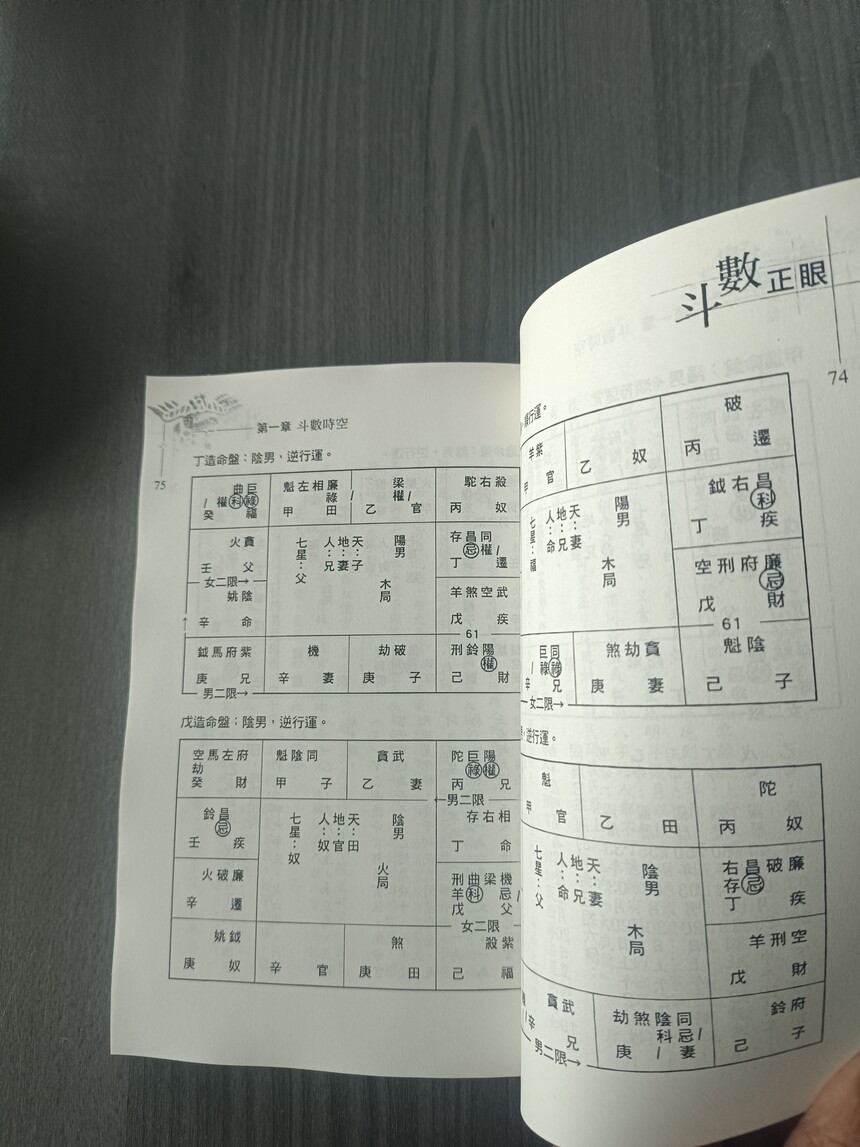 第一章 斗數時空
75
丁造命盤：陰男，逆行運。
巨曲
祿科權/
癸 福
廉相左魁
祿/
甲 田
梁
權/
乙 官
殺右駝
丙 奴
貪火
壬 父
女二限→
陰姚
辛 命
陽男
木局
天：子
地：妻
人：兄
七星：父
同昌存
權/忌
丁 遷
武空煞羊
戊 疾
61
紫府馬鉞
庚 兄
男二限→
機
辛 妻
破劫
庚 子
陽鈴刑
權
己 財
戊造命盤：陰男，逆行運。
府左馬空
劫
癸 財
同陰魁
甲 子
武貪
乙 妻
陽巨陀
權祿
丙 兄
←男二限
昌鈴
忌
壬 疾
廉破火
辛 遷
陰男
火局
天：田
地：官
人：奴
七星：奴
相右存
丁 命
機梁曲刑
忌/科羊
戊 父
女二限
鉞姚
庚 奴
辛 官
煞
庚 田
紫殺
己 福
斗數正眼
74
行運。
紫羊
甲 官
乙 奴
破
丙 遷
陽男
木局
天：妻
地：兄
人：命
七星：福
昌右鉞
科
丁 疾
廉府刑空
忌
戊 財
61
同巨
祿祿/
辛 兄
女二限→
貪劫煞
庚 妻
陰魁
己 子
逆行運。
魁
甲 官
乙 田
陀
丙 奴
陰男
木局
天：妻
地：兄
人：命
七星：父
廉破昌右
忌存
丁 疾
空刑羊
戊 財
武貪
辛 兄
男二限→
同陰煞劫
忌/科/
庚 妻
府鈴
己 子